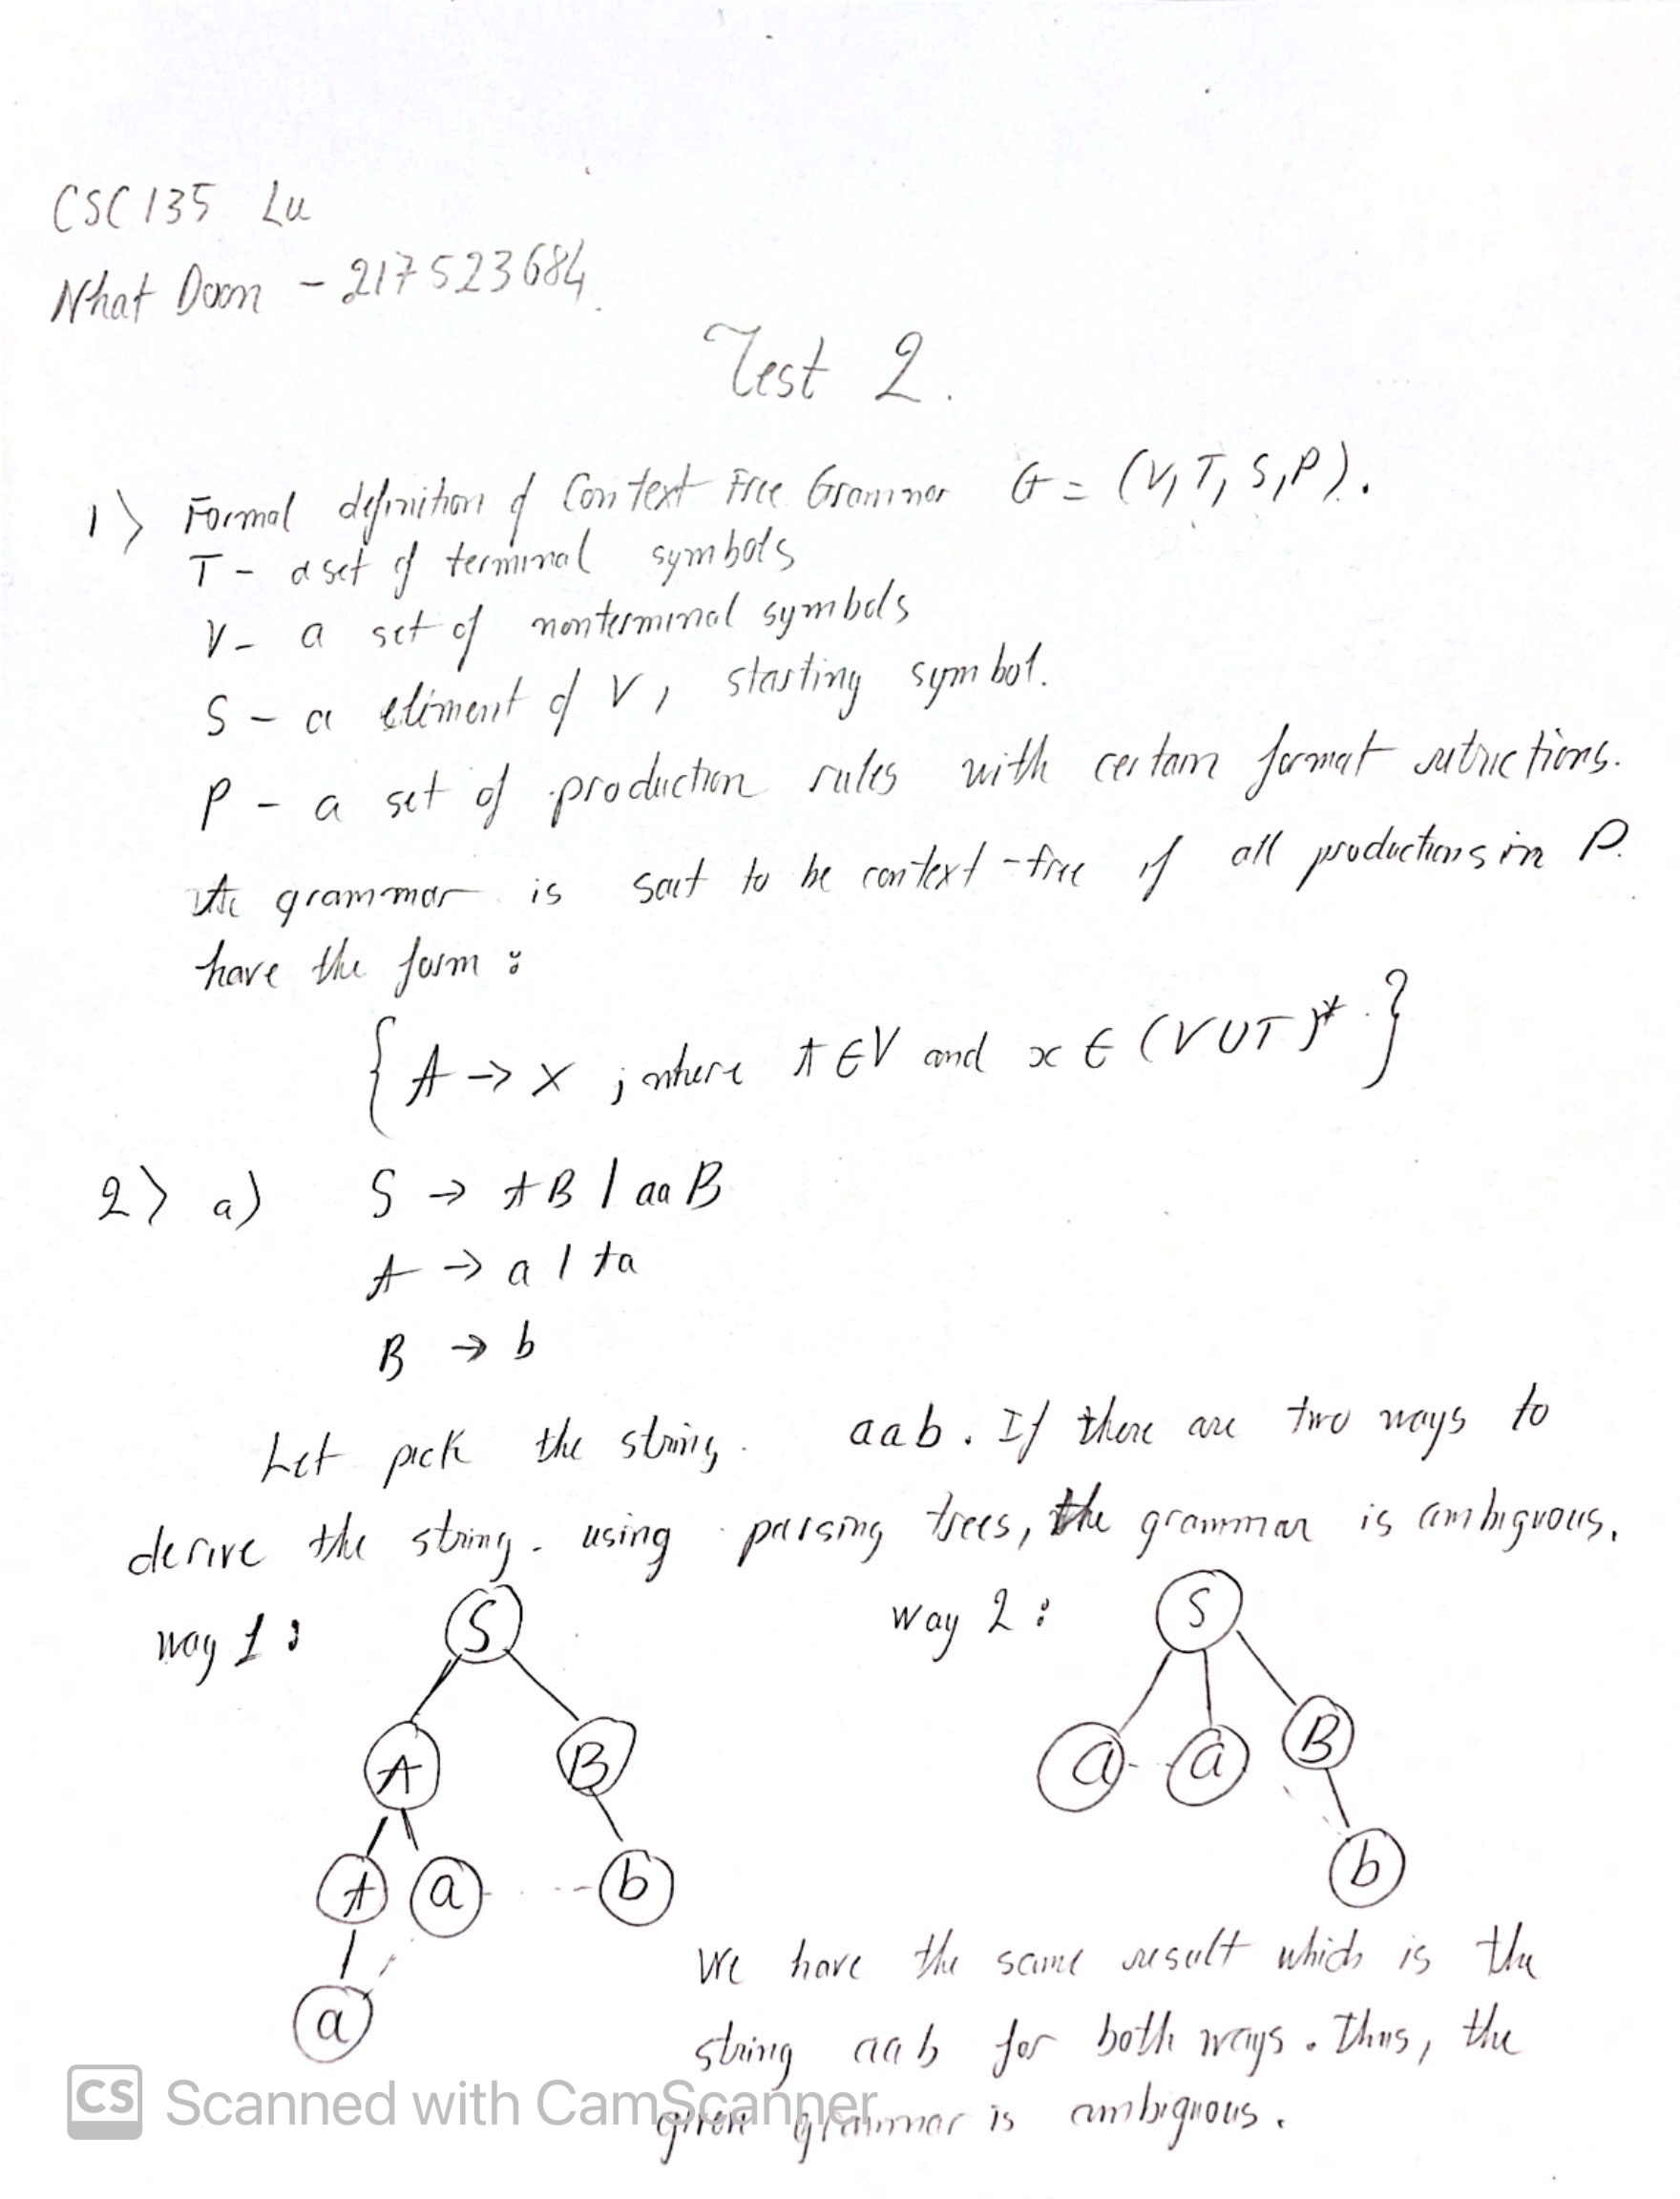 CSC 135 Lu
Nhat Doan - 217523684.
Test 2.
1> Formal definition of Context Free Grammar G = (V, T, S, P).
T - a set of terminal symbols
V - a set of nonterminal symbols
S - a element of V, starting symbol.
P - a set of production rules with certain format
grammar is sait to be context-free if all productions in P.
have the form :
{ A -> x ; where A ∈ V and x ∈ (V ∪ T)* }
2> a) S -> AB | aaB
A -> a | Aa
B -> b
Let pick the string. aab. If there are two ways to
derive the string. using parsing trees, the grammar is ambiguous.
way 1: way 2:
S S
A B a a B
A a b b
a
We have the same result which is the
string aab for both ways. Thus, the
given grammar is ambiguous.
CS Scanned with CamScanner